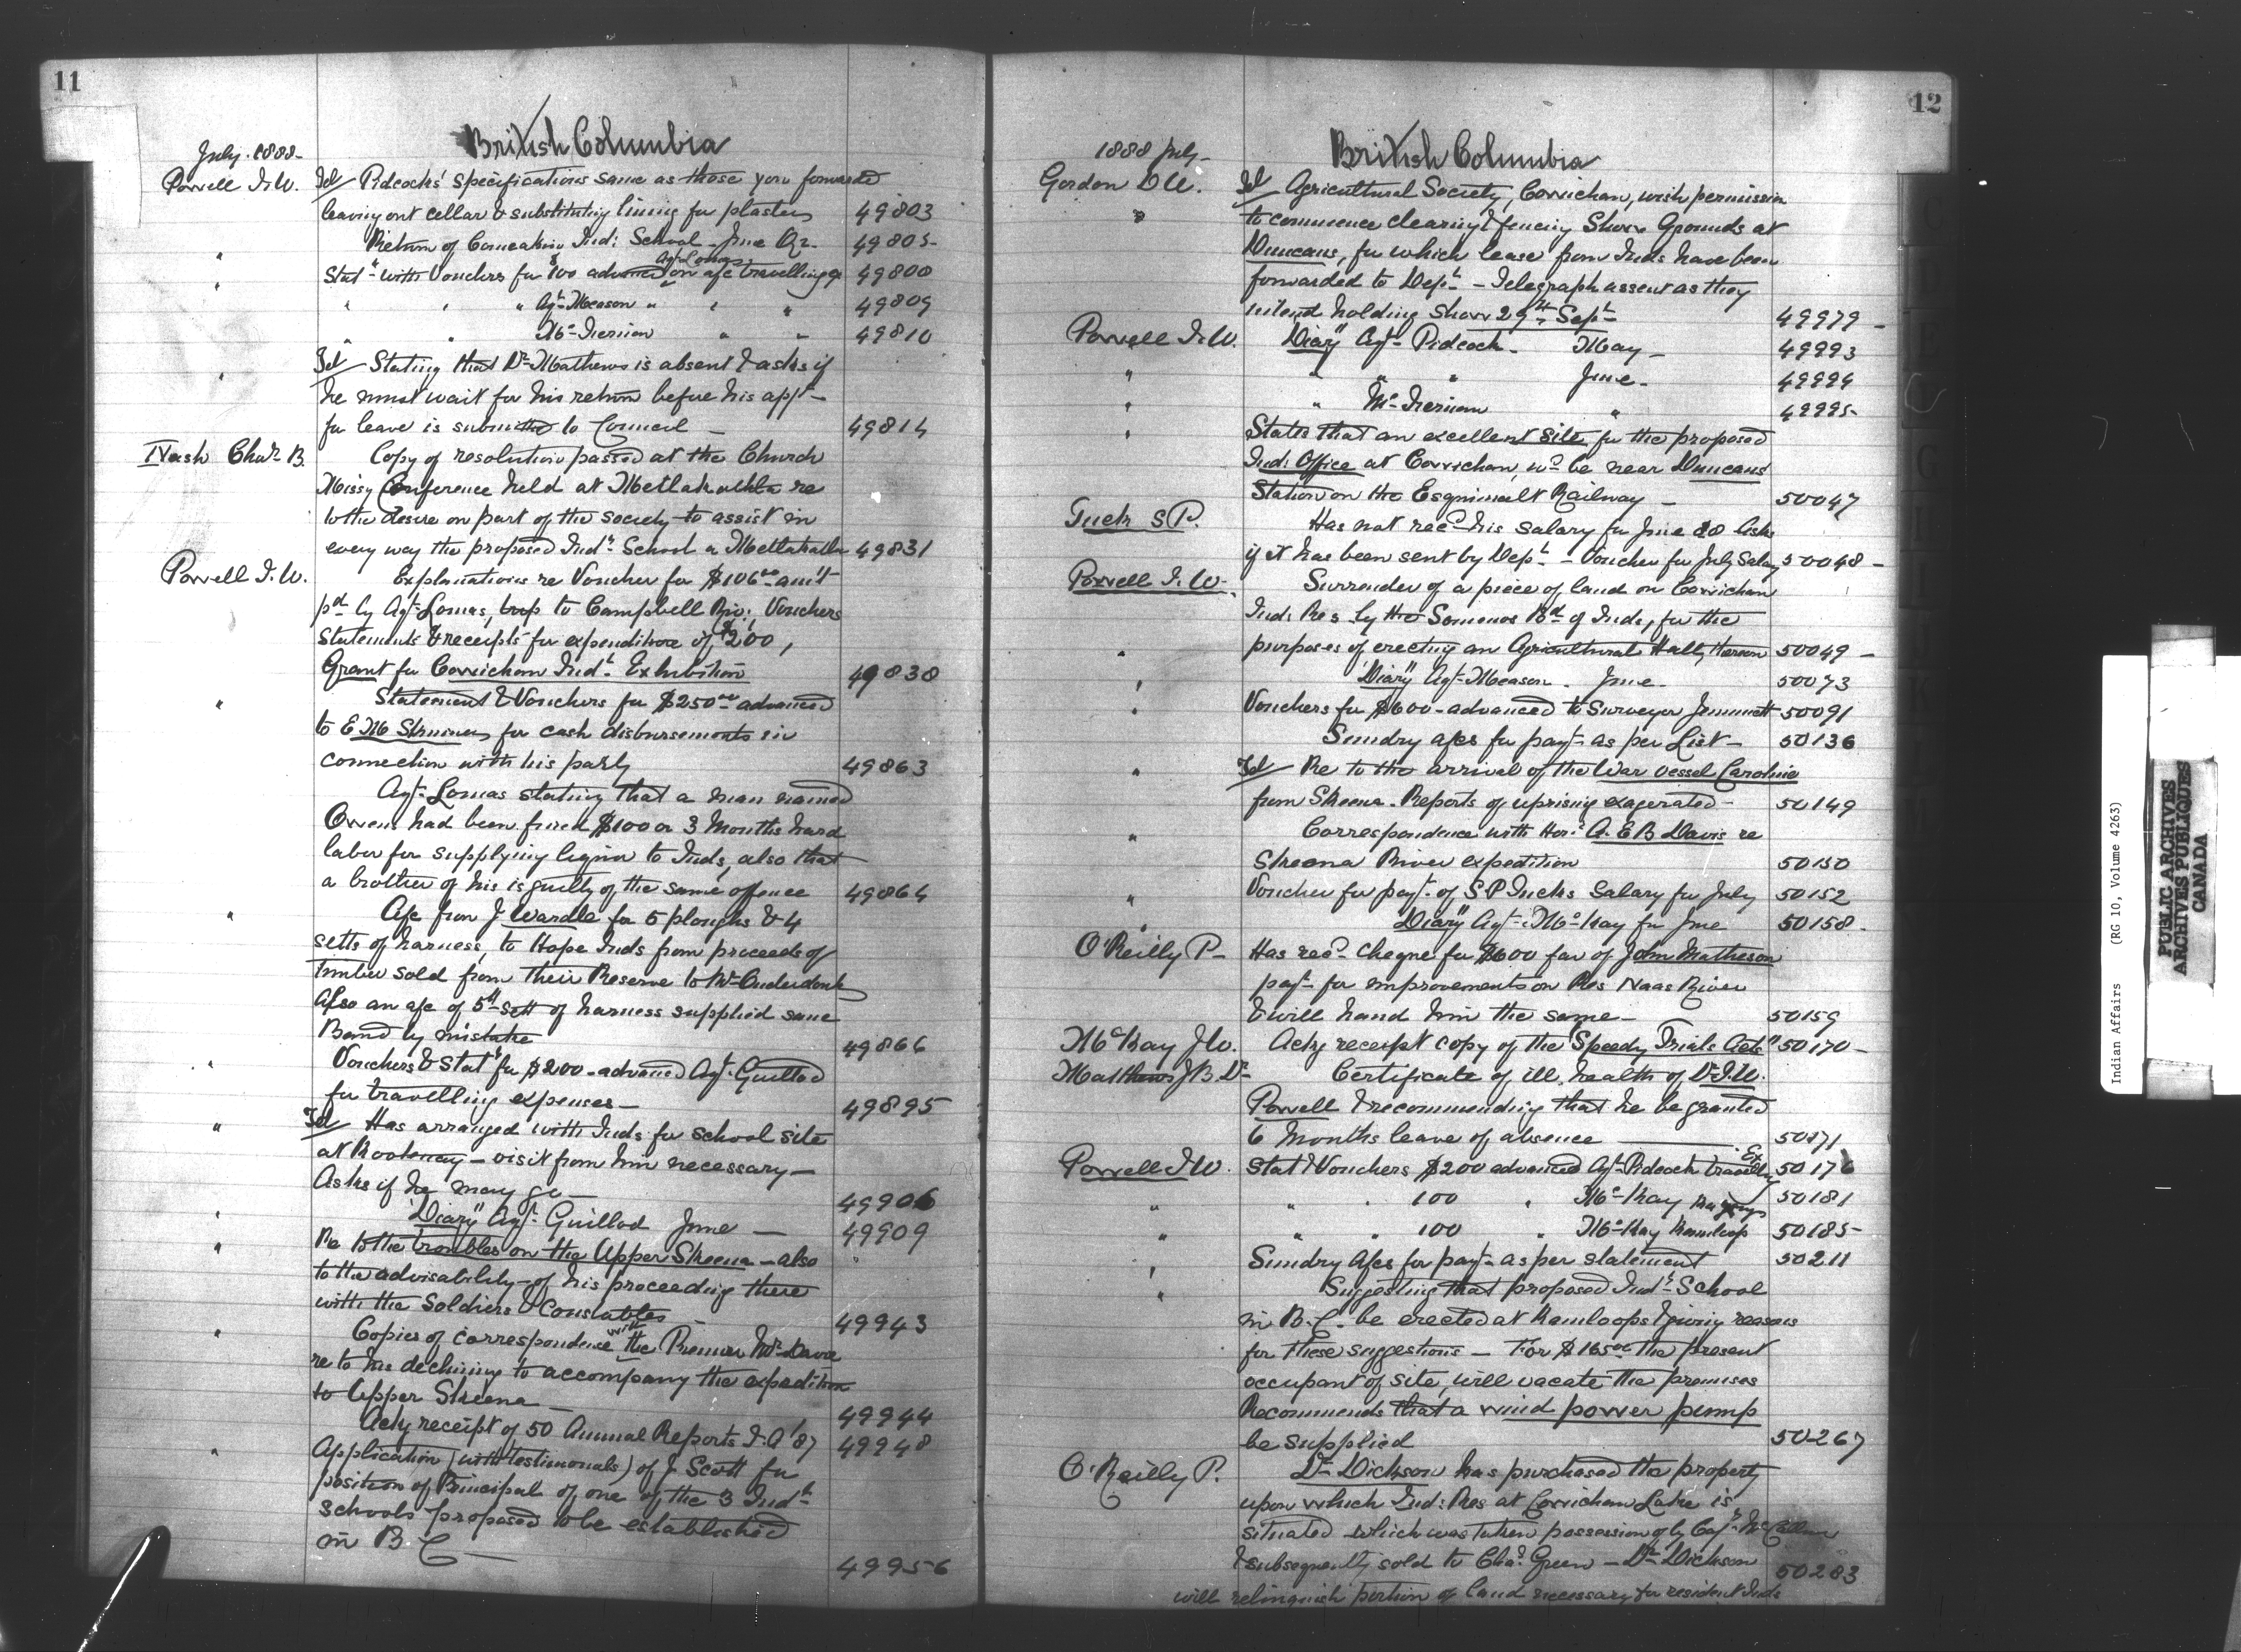 11
British Columbia
July. 1888-
Powell I.W. Tel/ Pidcocks' specifications same as those you forwarded
leaving out cellar & substituting lining for plaster 49803
" Return of Comeakin Ind: School - June Qr. 49805
" Statt with Vouchers for $100 advanced Agt Lomas on a/c travelling 49808
" " " Agt Meason " " " 49809
" " Mc Tiernan " " 49810
" Tel/ Stating that Dr Mathews is absent & asks if
he must wait for his return before his appn
for leave is submitted to Council - 49814
Nash Chas. B. Copy of resolution passed at the Church
Missy Conference held at Metlakahtla re
to the desire on part of the society to assist in
every way the proposed Indl School a Metlakatla 49831
Powell I.W. Explanations re Voucher for $106.00 am't
pd by Agt Lomas, trip to Campbell Riv: Vouchers
" Statements & receipts for expenditure of $200,
Grant for Cowichan Indl Exhibition 49838
" Statement & Vouchers for $250.00 advanced
to E M Skinner for cash disbursements in
connection with his party 49863
Agt Lomas stating that a man named
Owens had been fined $100 or 3 Months hard
labor for supplying liquor to Inds, also that
a brother of his is guilty of the same offence 49864
" A/c from J Wardle for 5 ploughs & 4
setts of harness, to Hope Inds from proceeds of
timber sold from their Reserve to Mr Onderdonk
Also an a/c of 5th Sett of harness supplied same
Band by mistake 49866
" Vouchers & Statt for $200 - advanced Agt Guillod
for travelling expenses - 49895
" Tel/ Has arranged with Inds for school site
at Kootenay - visit from him necessary -
Asks if he may go - 49906
" "Diary" Agt Guillod June - 49909
" Re to the troubles on the Upper Skeena - also
to the advisability of his proceeding there
with the Soldiers & Constables - 49943
" Copies of correspondence with the Premier Mr Davie
re to his declining to accompany the expedition
to Upper Skeena - 49944
Ackg receipt of 50 Annual Reports I.A '87 49948
" Application (with testimonials) of J Scott for
position of Principal of one of the 3 Indl
schools proposed to be established
in B C - 49956
12
British Columbia
1888 July -
Gordon D W. Tel Agricultural Society, Cowichan, wish permission
" to commence clearing & fencing Show Grounds at
Duncans, for which lease from Inds have been
forwarded to Dept - Telegraph assent as they
intend holding Show 29th Sept 49979 -
Powell I.W. "Diary" Agt Pidcock - May - 49993
" " " " June - 49994
" " Mc Tiernan " 49995
" States that an excellent site for the proposed
Ind: Office at Cowichan, wd be near Duncans
Station on the Esquimalt Railway - 50047
Tuck S P. Has not recd his salary for June 88 Asks
if it has been sent by Dept - Voucher for July Salary 50048 -
Powell I.W. Surrender of a piece of land on Cowichan
Ind: Res by the Somenos Bd of Inds, for the
purposes of erecting an Agricultural Hall, thereon 50049 -
" "Diary" Agt Meason - June - 50073
" Vouchers for $600 - advanced to Surveyor Jemmett 50091
" Sundry a/cs for payt as per List - 50136
" Tel/ Re to the arrival of the War vessel Caroline
from Skeena - Reports of uprising exagerated - 50149
" Correspondence with Hon. A. E B Davie re
Skeena River expedition 50150
" Voucher for payt of S P Tucks Salary for July 50152
" "Diary" Agt Mc Kay for June 50158 -
O'Reilly P - Has recd cheque for $600 fav of John Matheson
payt for improvements on Res Naas River
& will hand him the same - 50159
McKay J W. Ackg receipt copy of the "Speedy Trials Acts" 50170 -
Matthews J B. Dr Certificate of ill health of Dr I.W.
Powell & recommending that he be granted
6 Months leave of absence 50171
Powell I W. Stat & Vouchers $200 advanced Agt Pidcock travellg Ex 50176
" " " 100 " Mc Kay 50181
" " " 100 " Mc Kay Kamloop 50185
" Sundry A/cs for payt as per statement 50211
" Suggesting that proposed Indl School
in B.C. be erected at Kamloops & giving reasons
for these suggestions - For $165.00 the present
occupant of site, will vacate the premises
Recommends that a wind power pump
be supplied 50267
O'Reilly P. Dr Dickson has purchased the property
upon which Ind: Res at Cowichan Lake is
situated which was taken possession of by Capt
& subsequently sold to Chas. Green - Dr Dickson 50283
will relinquish portion of land necessary for resident Inds
Indian Affairs (RG 10, Volume 4263)
PUBLIC ARCHIVES
ARCHIVES PUBLIQUES
CANADA